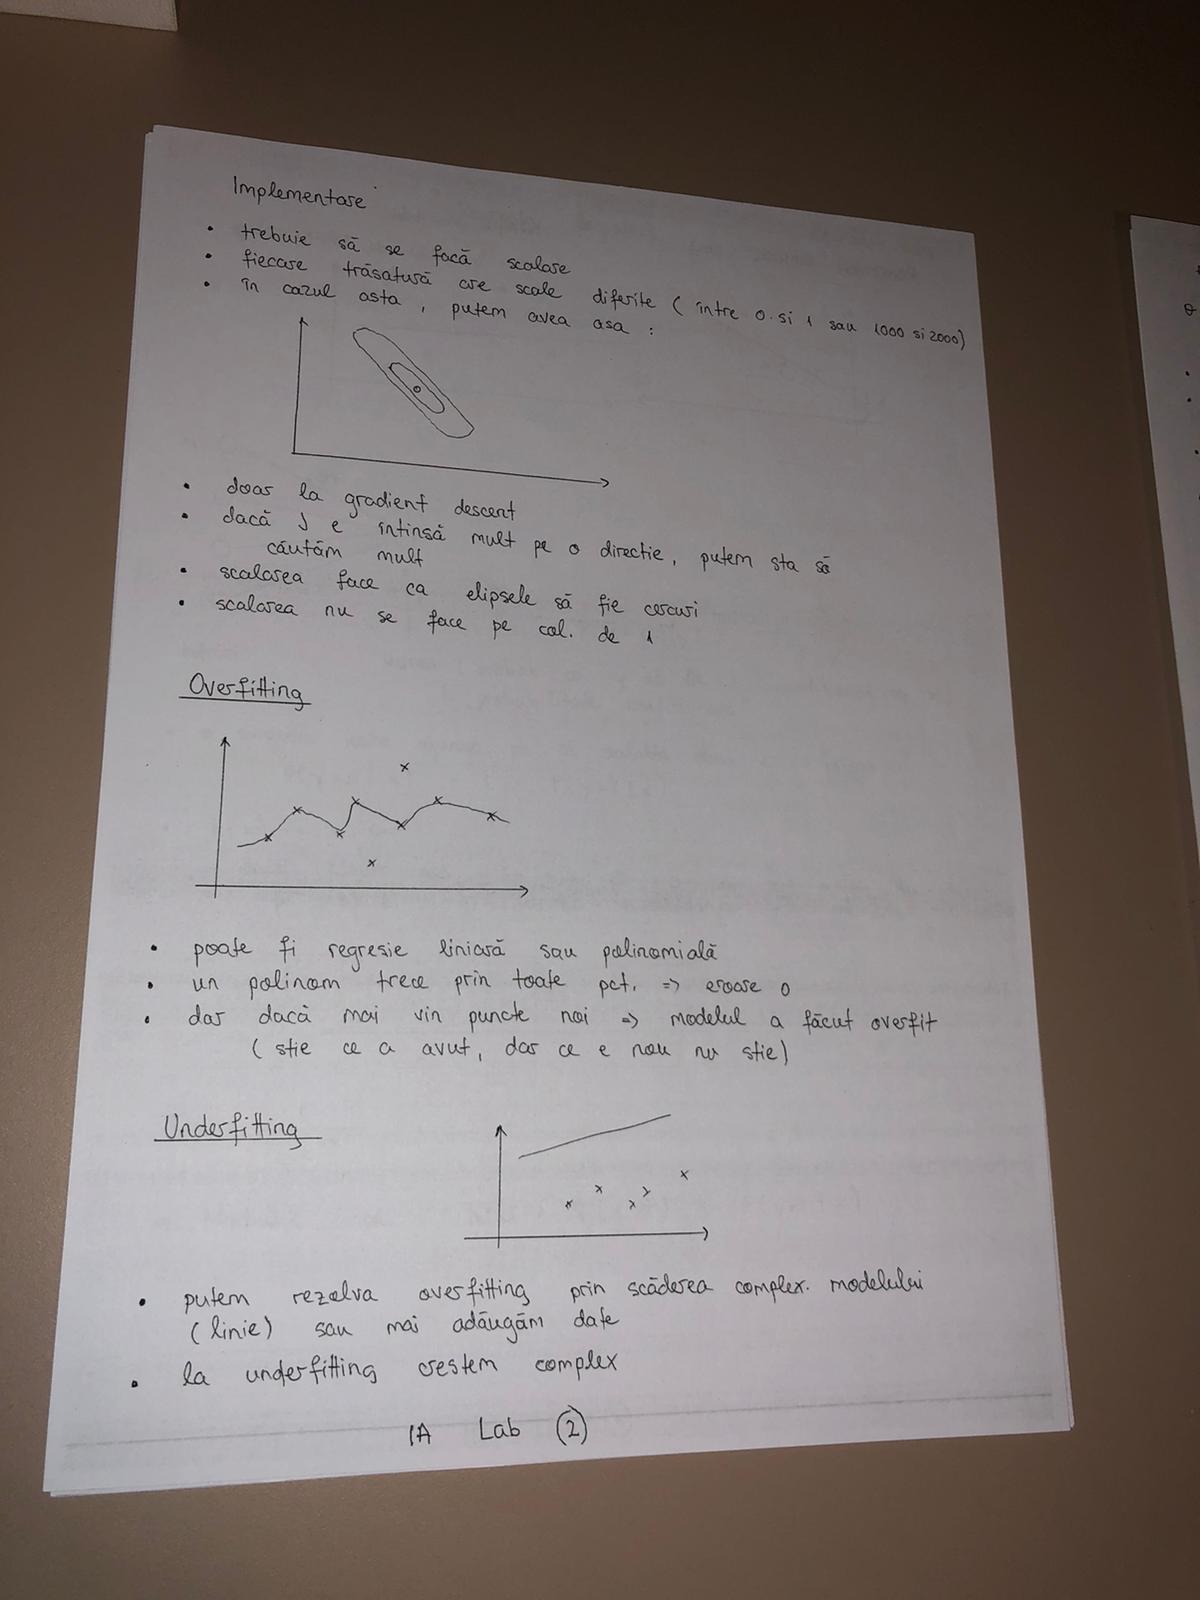 Implementare
• trebuie să se facă scalare
• fiecare trăsatură are scale diferite (între 0 si 1 sau 1000 si 2000)
• în cazul asta, putem avea asa :
• doar la gradient descent
• dacă J e întinsă mult pe o directie, putem sta să
căutăm mult
• scalarea face ca elipsele să fie cercuri
• scalarea nu se face pe col. de 1
Overfitting
• poate fi regresie liniară sau polinomială
• un polinom trece prin toate pct. => eroare 0
• dar dacă mai vin puncte noi => modelul a făcut overfit
(stie ce a avut, dar ce e nou nu stie)
Underfitting
• putem rezolva overfitting prin scăderea complex. modelului
(linie) sau mai adăugăm date
• la underfitting crestem complex
IA Lab 2